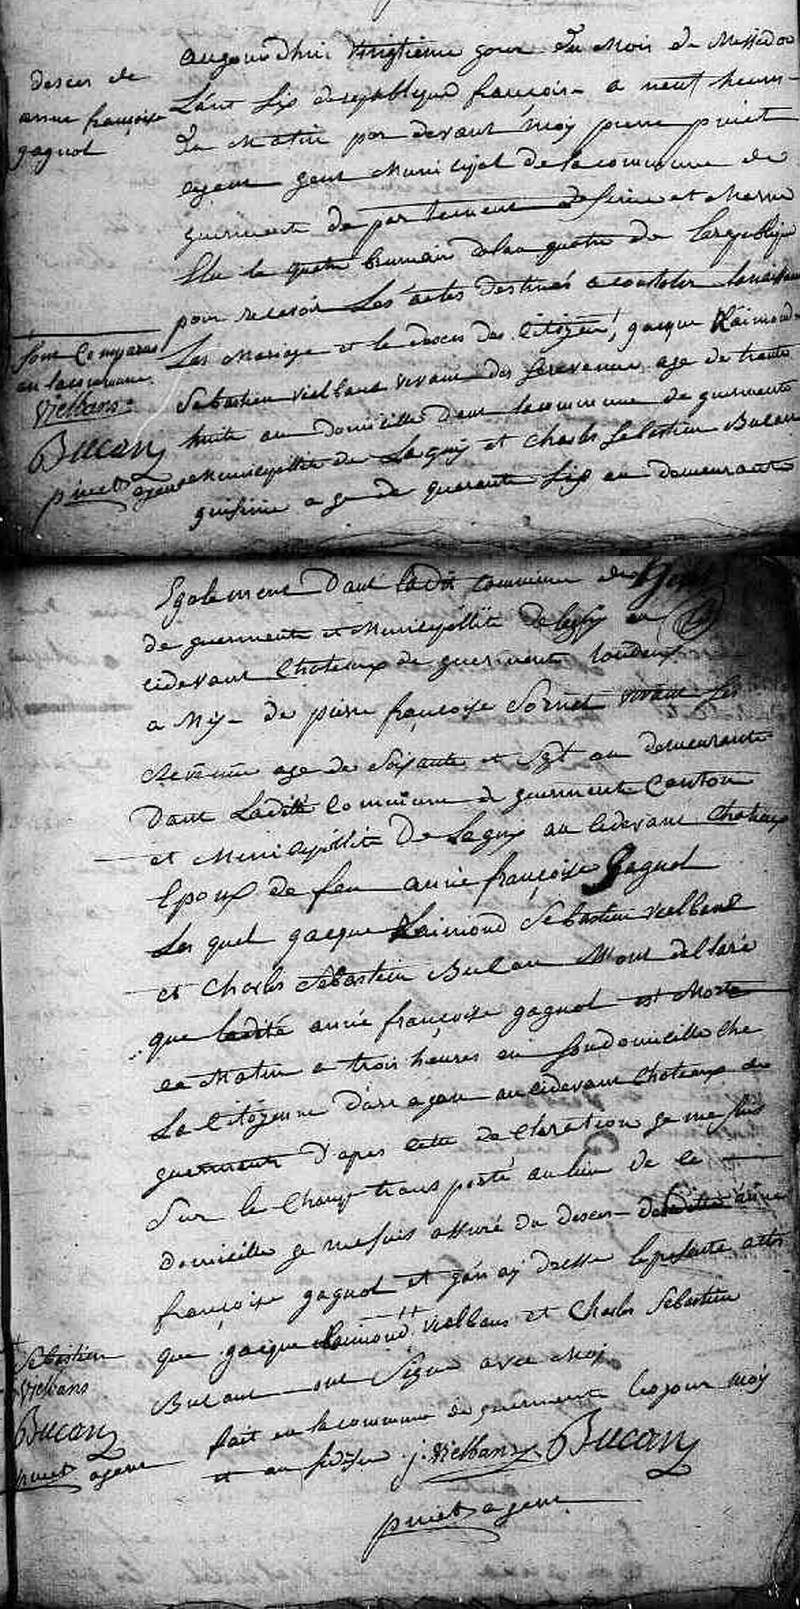 desces de
anne françoise
gagnol
aujourdhui vingtieme jour du Mois de Messidor
Lant six de republique françoise a neuf heures
du Matin par devant moy pierre
agent Municipal de la commune de
guermente de partement de seine et Marne
Elu le quatre brumair de lan quatre de la republique
pour recevoir Les actes destinés a constater
Les Mariage et le deces des Citoyen, gacque Raimond
Sebastien vielbans vivant des ses revenue age de trante
huite an domicille dans lacommune de guermente
Municipallité de Lagny et Charles Sebastien Bucan
age de quarente six an demeurante
sont Comparus
en lacommune
Vielbans
Bucan
agent
Egalement dans ladit commune de
de guermente et Municipallité de lagny au
cidevant Chateaux de guermente
a Mis de pierre françoise vivant ses
Revenue age de soixante et sept an demeurante
dans Ladite Commune de guermente Canton
et Municipallité De Lagny au cidevant Chateaux
Epoux de feu anne françoise Gagnol
Les quel gacque Raimond Sebastien vielbans
et Charles Sebastien Bucan Mont declaré
que ladite anne françoise gagnol est Morte
ce Matin a trois heures en son domicille che
La Citoyenne au cidevant Chateaux de
guermente d'apres cette declaration je me suis
Sur le Champ transporté au lieu de ce
domicille je me suis assuré du deces de ladite anne
françoise gagnol et jan ay dresse le presente acte
que gacque Raimond Vielbans et Charles Sebastien
Bucan ont Signe avec Moy
fait en la commune de guermente les jour moy
et an
Sebastien
Vielbans
Bucan
agent
j. Vielbans Bucan
agent